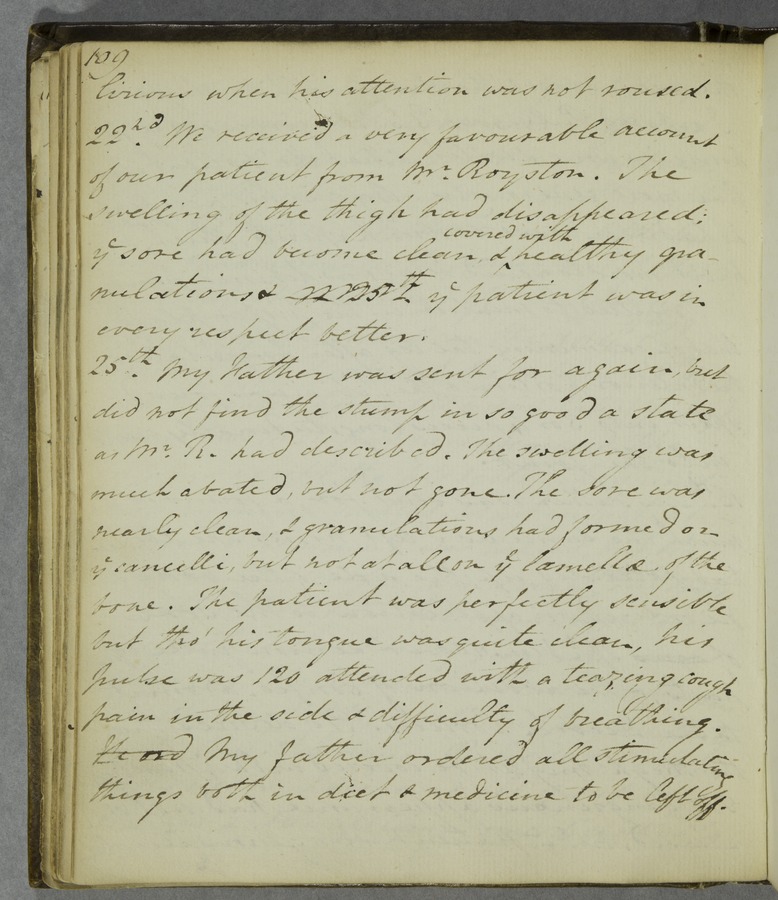 109
lirious when his attention was not roused.
22nd. We received a very favourable account
of our patient from Mr. Royston. The
swelling of the thigh had disappeared;
covered with
ye sore had become clean, & ^ healthy gra-
nulations & ye patient was in
every respect better.
25th. My Father was sent for again, but
did not find the stump in so good a state
as Mr. R. had described. The swelling was
much abated, but not gone. The sore was
nearly clean, & granulations had formed on
ye cancelli, but not at all on ye lamellæ of the
bone. The patient was perfectly sensible
but tho' his tongue was quite clean, his
pulse was 120 attended with a teazing cough
pain in the side & difficulty of breathing.
He ord My father ordered all stimulating
things both in diet & medicine to be left off.